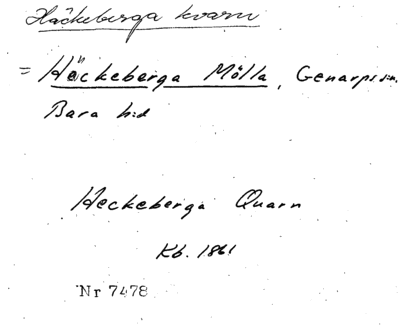 Häckeberga kvarn
= Häckeberga Mölla, Genarps sn.
Bara hd
Heckeberga Quarn
Kb. 1861
Nr 7478